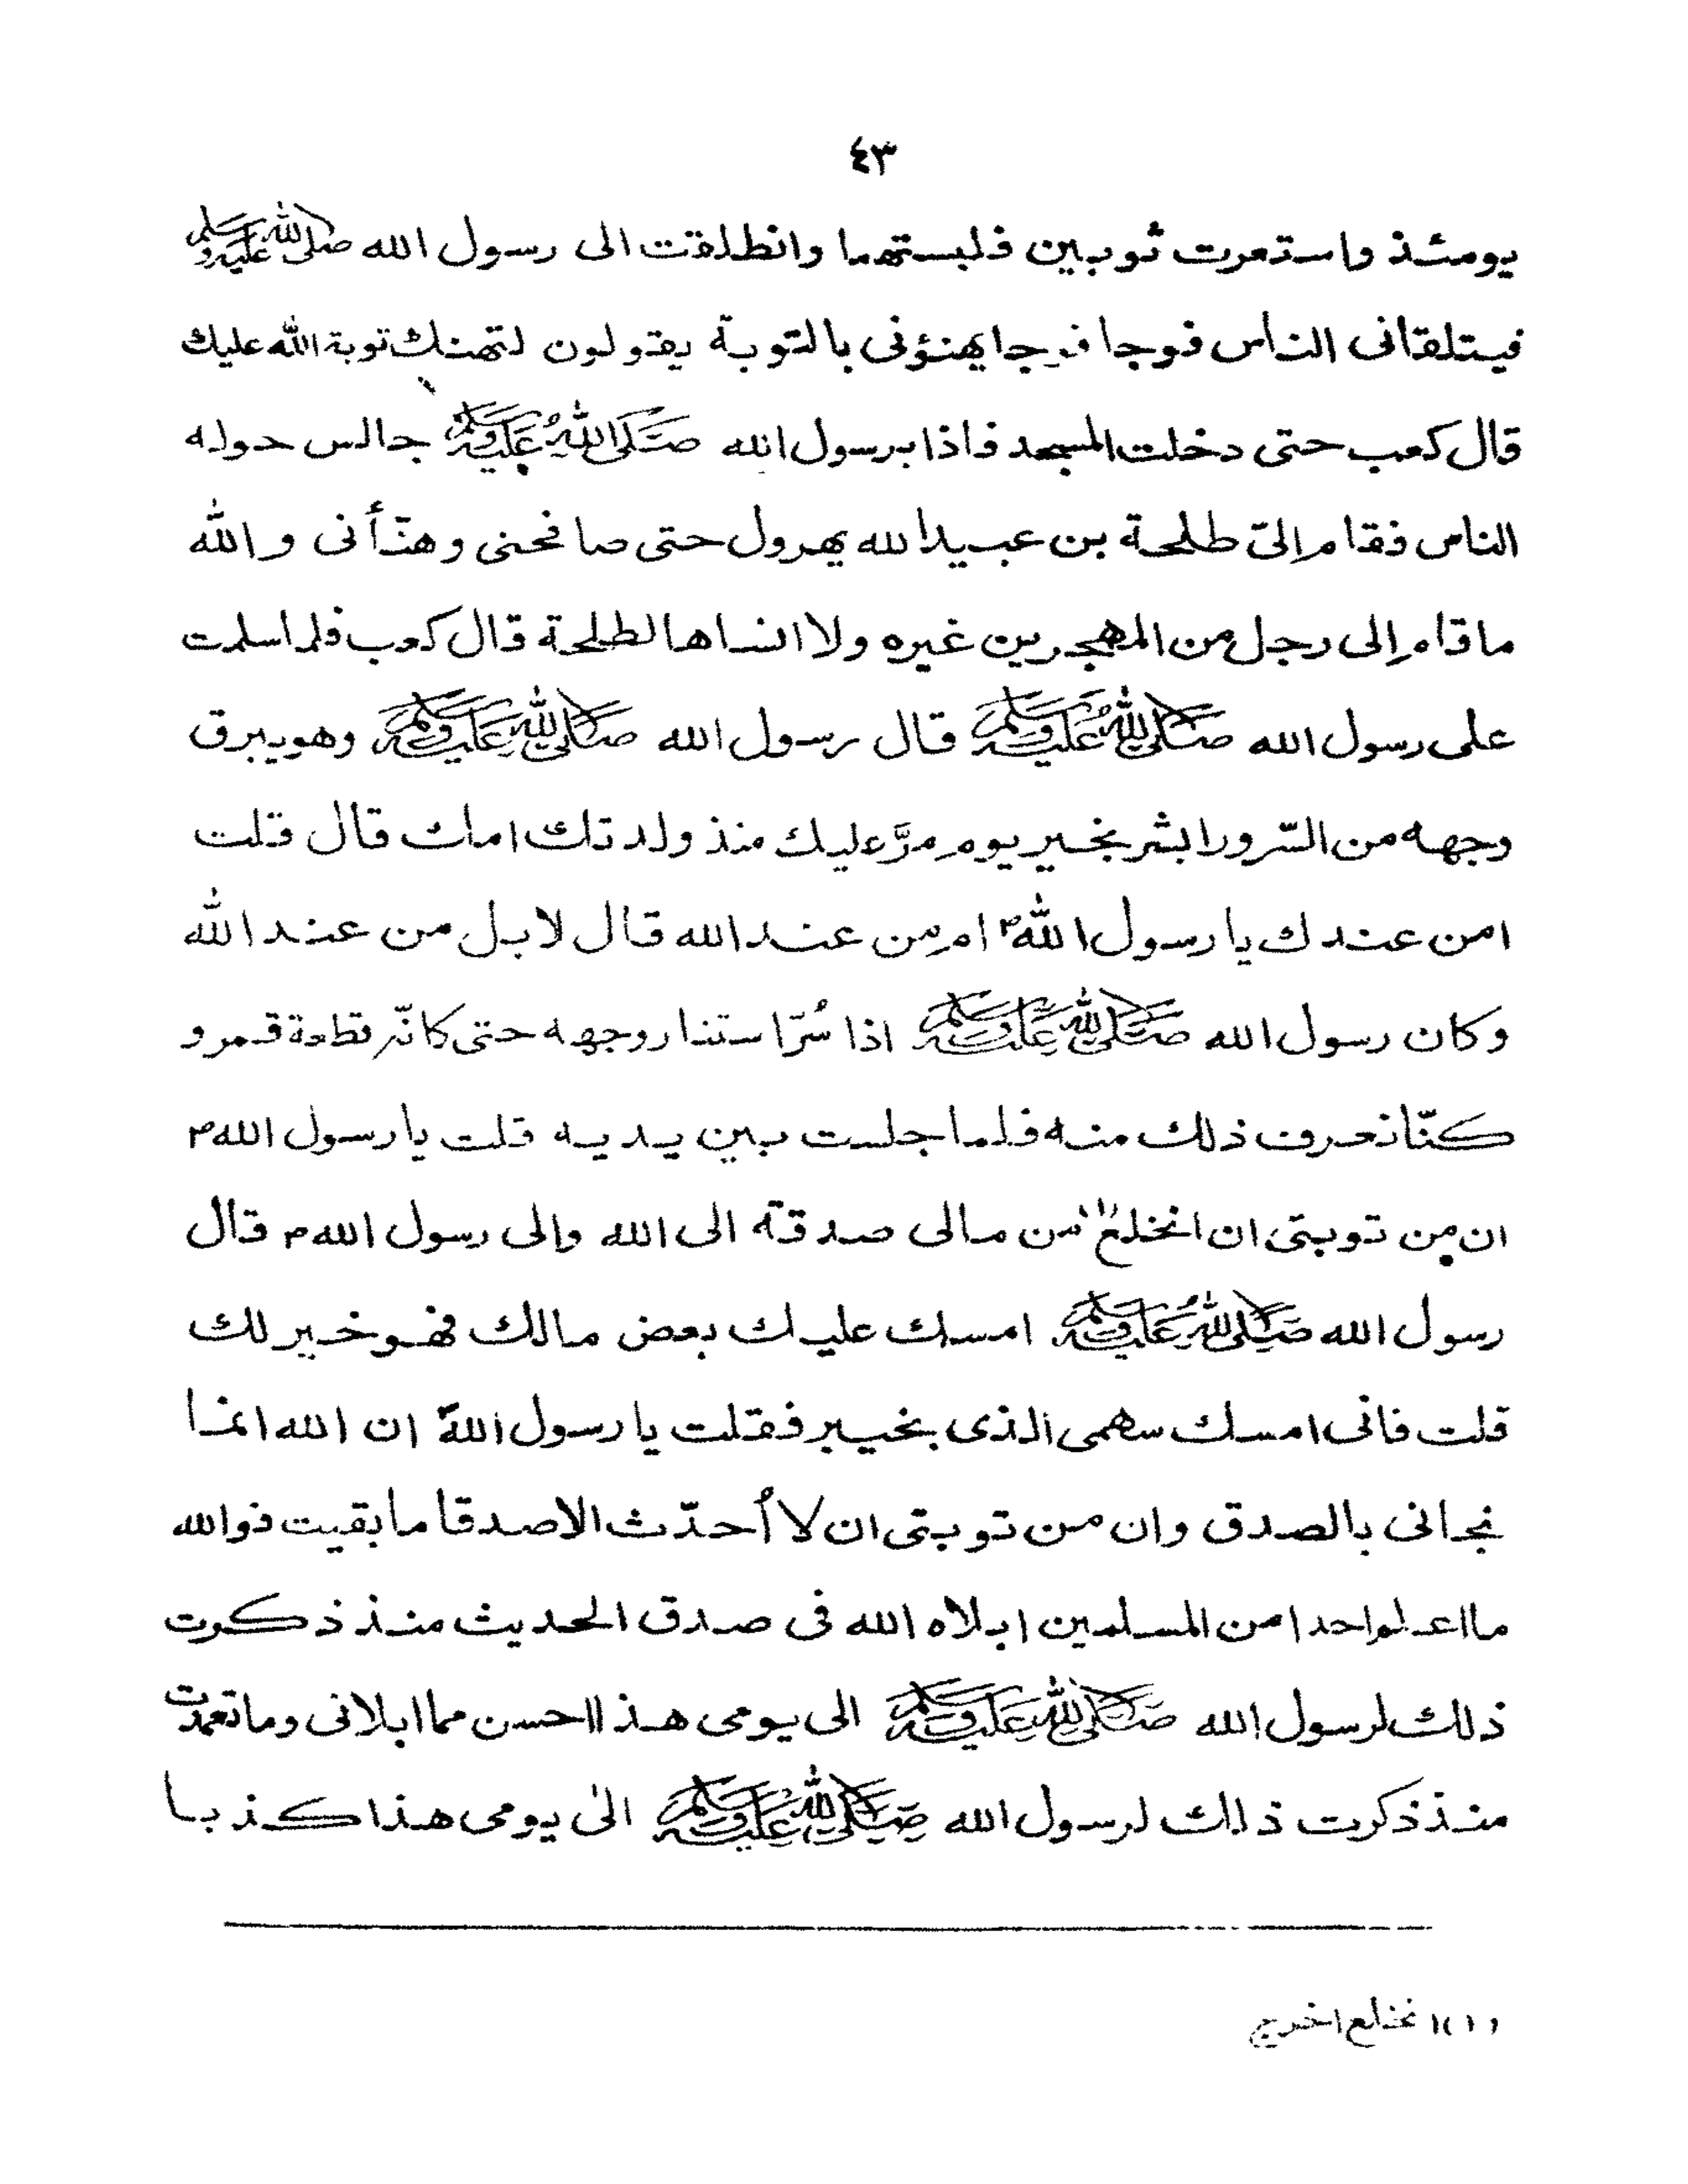 ٤٣
يومئذ واستعرت ثوبين فلبستهما وانطلقت الى رسول الله صلى الله عليه وسلم
فيتلقانى الناس فوجا فوجا يهنؤنى بالتوبة يقولون لتهنك توبة الله عليك
قال كعب حتى دخلت المسجد فاذا برسول الله صلى الله عليه وسلم جالس حوله
الناس فقام الىّ طلحة بن عبيد الله يهرول حتى صافحنى وهنّأنى والله
ما قام إلى رجل من المهجرين غيره ولا انساها لطلحة قال كعب فلما سلمت
على رسول الله صلى الله عليه وسلم قال رسول الله صلى الله عليه وسلم وهو يبرق
وجهه من السّرور ابشر بخير يوم مرَّ عليك منذ ولدتك امك قال قلت
امن عندك يا رسول اللهؐ ام من عند الله قال لا بل من عند الله
وكان رسول الله صلى الله عليه وسلم اذا سُرّ استنار وجهه حتى كانّه قطعة قمر و
كنّا نعرف ذلك منه فلما جلست بين يديه قلت يا رسول الله ص
ان من توبتى ان انخلع(١) من مالى صدقة الى الله والى رسول الله ص قال
رسول الله صلى الله عليه وسلم امسك عليك بعض مالك فهو خير لك
قلت فانى امسك سهمى الذى بخيبر فقلت يا رسول اللهؐ ان الله انما
نجانى بالصدق وان من توبتى ان لا أُحدّث الا صدقا ما بقيت فوالله
ما اعلم احدا من المسلمين ابلاه الله فى صدق الحديث منذ ذكرت
ذلك لرسول الله صلى الله عليه وسلم الى يومى هذا احسن مما ابلانى وما تعمدت
منذ ذكرت ذلك لرسول الله صلى الله عليه وسلم الى يومى هذا كذبا
(١) انخلع اخرج